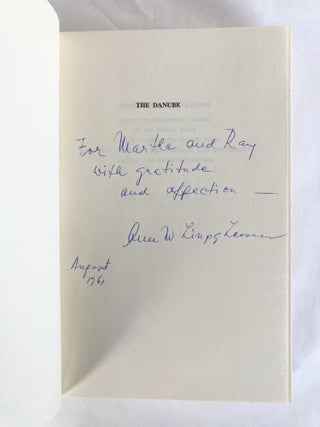 THE DANUBE
For Martha and Ray
with gratitude
and affection —
August
1961